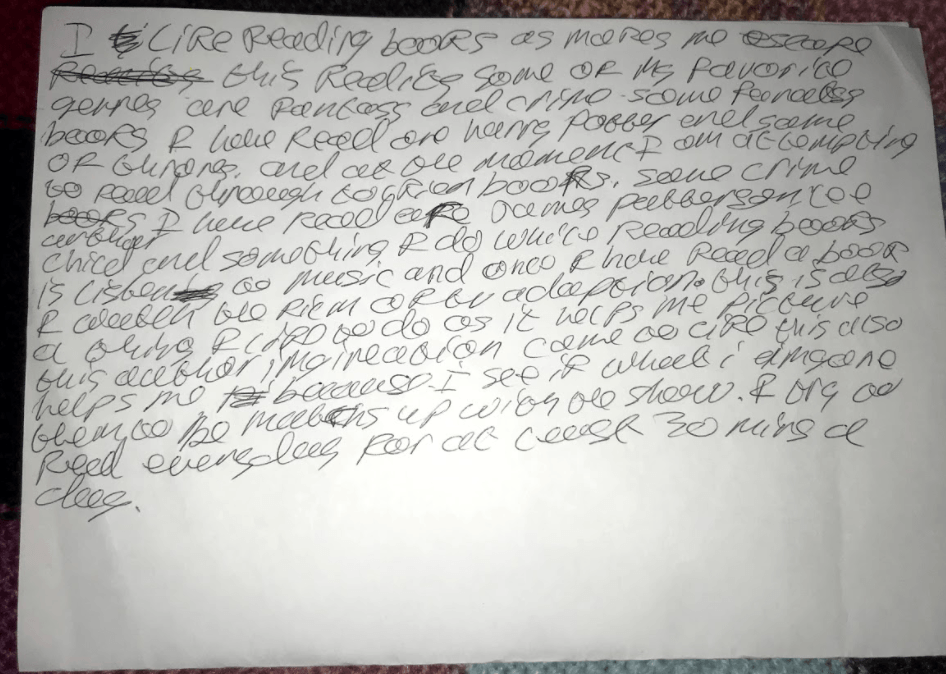 I like Reading books as makes me escape
this Reality some of my favorite
genres are fantasy and crime some fantasy
books I have Read are harry potter and game
of thrones. and at the moment I am attempting
to read through tolkien books. some crime
I have read are James patterson Lee
child and something I do while Reading books
is listen to music and once I have Read a book
I watch the film or tv adaption. this is also
a thing I like to do as it helps me picture
this author imagination come to life this also
helps me because I see if what i imagone
them to be matchs up with the show. I try to
Read everyday for at least 30 mins a
day.